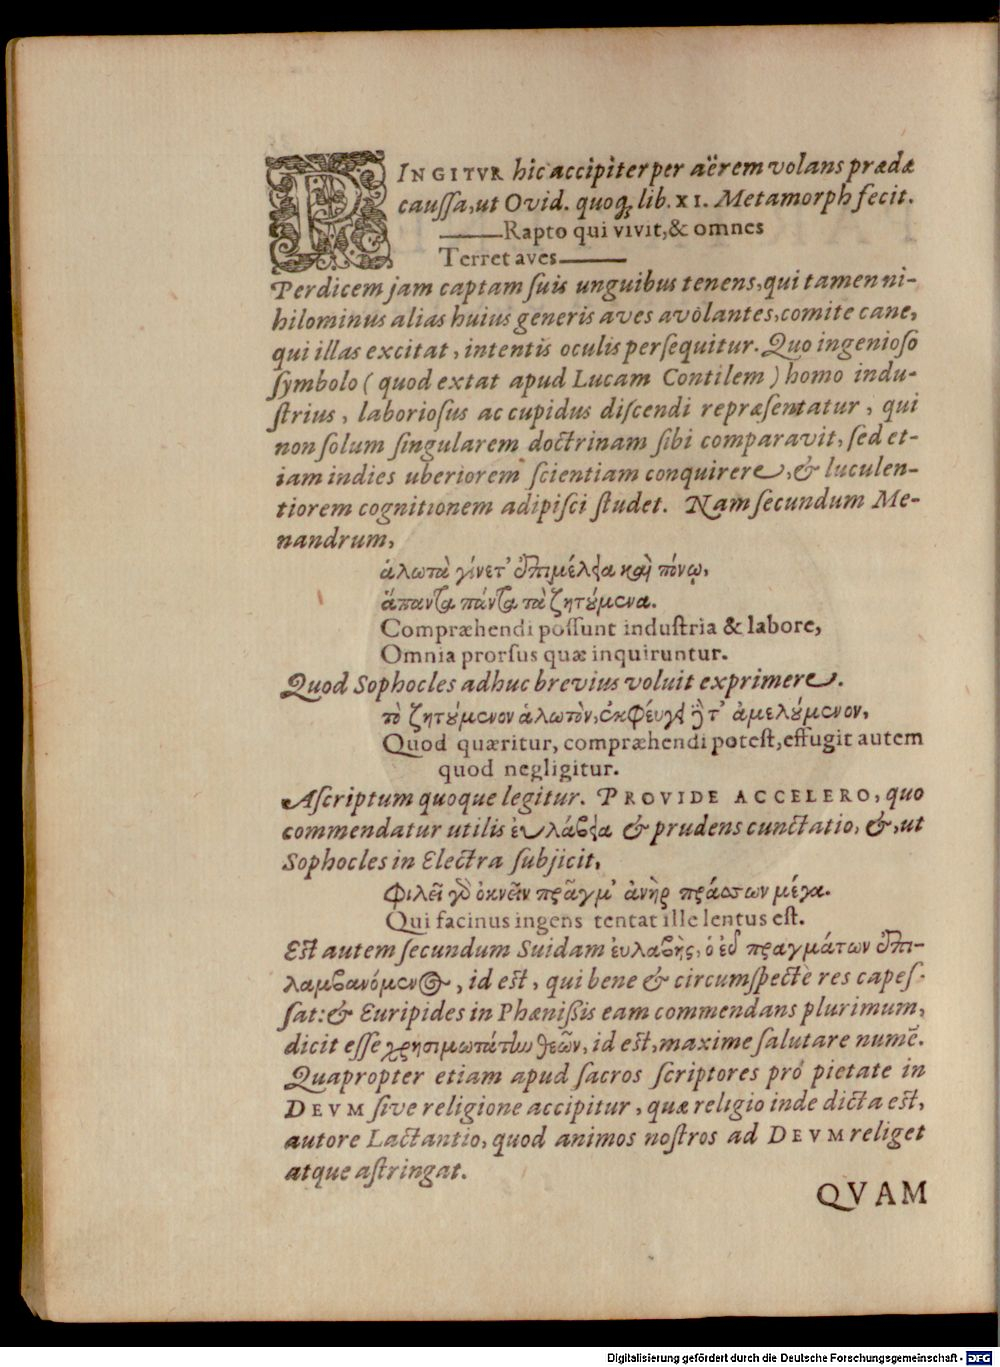 PINGITVR hic accipiter per aërem volans prædæ
caussa, ut Ovid. quoq; lib. XI. Metamorph fecit.
——Rapto qui vivit, & omnes
Terret aves——
Perdicem jam captam suis unguibus tenens, qui tamen ni-
hilominus alias huius generis aves avolantes, comite cane,
qui illas excitat, intentis oculis persequitur. Quo ingenioso
symbolo (quod extat apud Lucam Contilem) homo indu-
strius, laboriosus ac cupidus discendi repræsentatur, qui
non solum singularem doctrinam sibi comparavit, sed et-
iam indies uberiorem scientiam conquirere, & luculen-
tiorem cognitionem adipisci studet. Nam secundum Me-
nandrum,
ἁλωτὰ γίνετ' ἐπιμέλεια καὶ πόνῳ,
ἅπαντα πάντα τὰ ζητούμενα.
Compræhendi possunt industria & labore,
Omnia prorsus quæ inquiruntur.
Quod Sophocles adhuc brevius voluit exprimere.
τὸ ζητούμενον ἁλωτὸν, ἐκφέυγει ἢ τ' ἀμελούμενον,
Quod quæritur, compræhendi potest, effugit autem
quod negligitur.
Ascriptum quoque legitur. PROVIDE ACCELERO, quo
commendatur utilis ἐυλάβεια & prudens cunctatio, &, ut
Sophocles in Electra subjicit,
Φιλεῖ γὸ ὀκνεῖν πρᾶγμ' ἀνὴρ πράσσων μέγα.
Qui facinus ingens tentat ille lentus est.
Est autem secundum Suidam ἐυλαβὴς, ὁ εὖ πραγμάτων ἐπι-
λαμβανόμενος, id est, qui bene & circumspectè res capes-
sat: & Euripides in Phœnissis eam commendans plurimum,
dicit esse χρησιμωτάτην θεῶν, id est, maxime salutare numē.
Quapropter etiam apud sacros scriptores pro pietate in
DEVM sive religione accipitur, quæ religio inde dicta est,
autore Lactantio, quod animos nostros ad DEVM religet
atque astringat.
QVAM
Digitalisierung gefördert durch die Deutsche Forschungsgemeinschaft - DFG